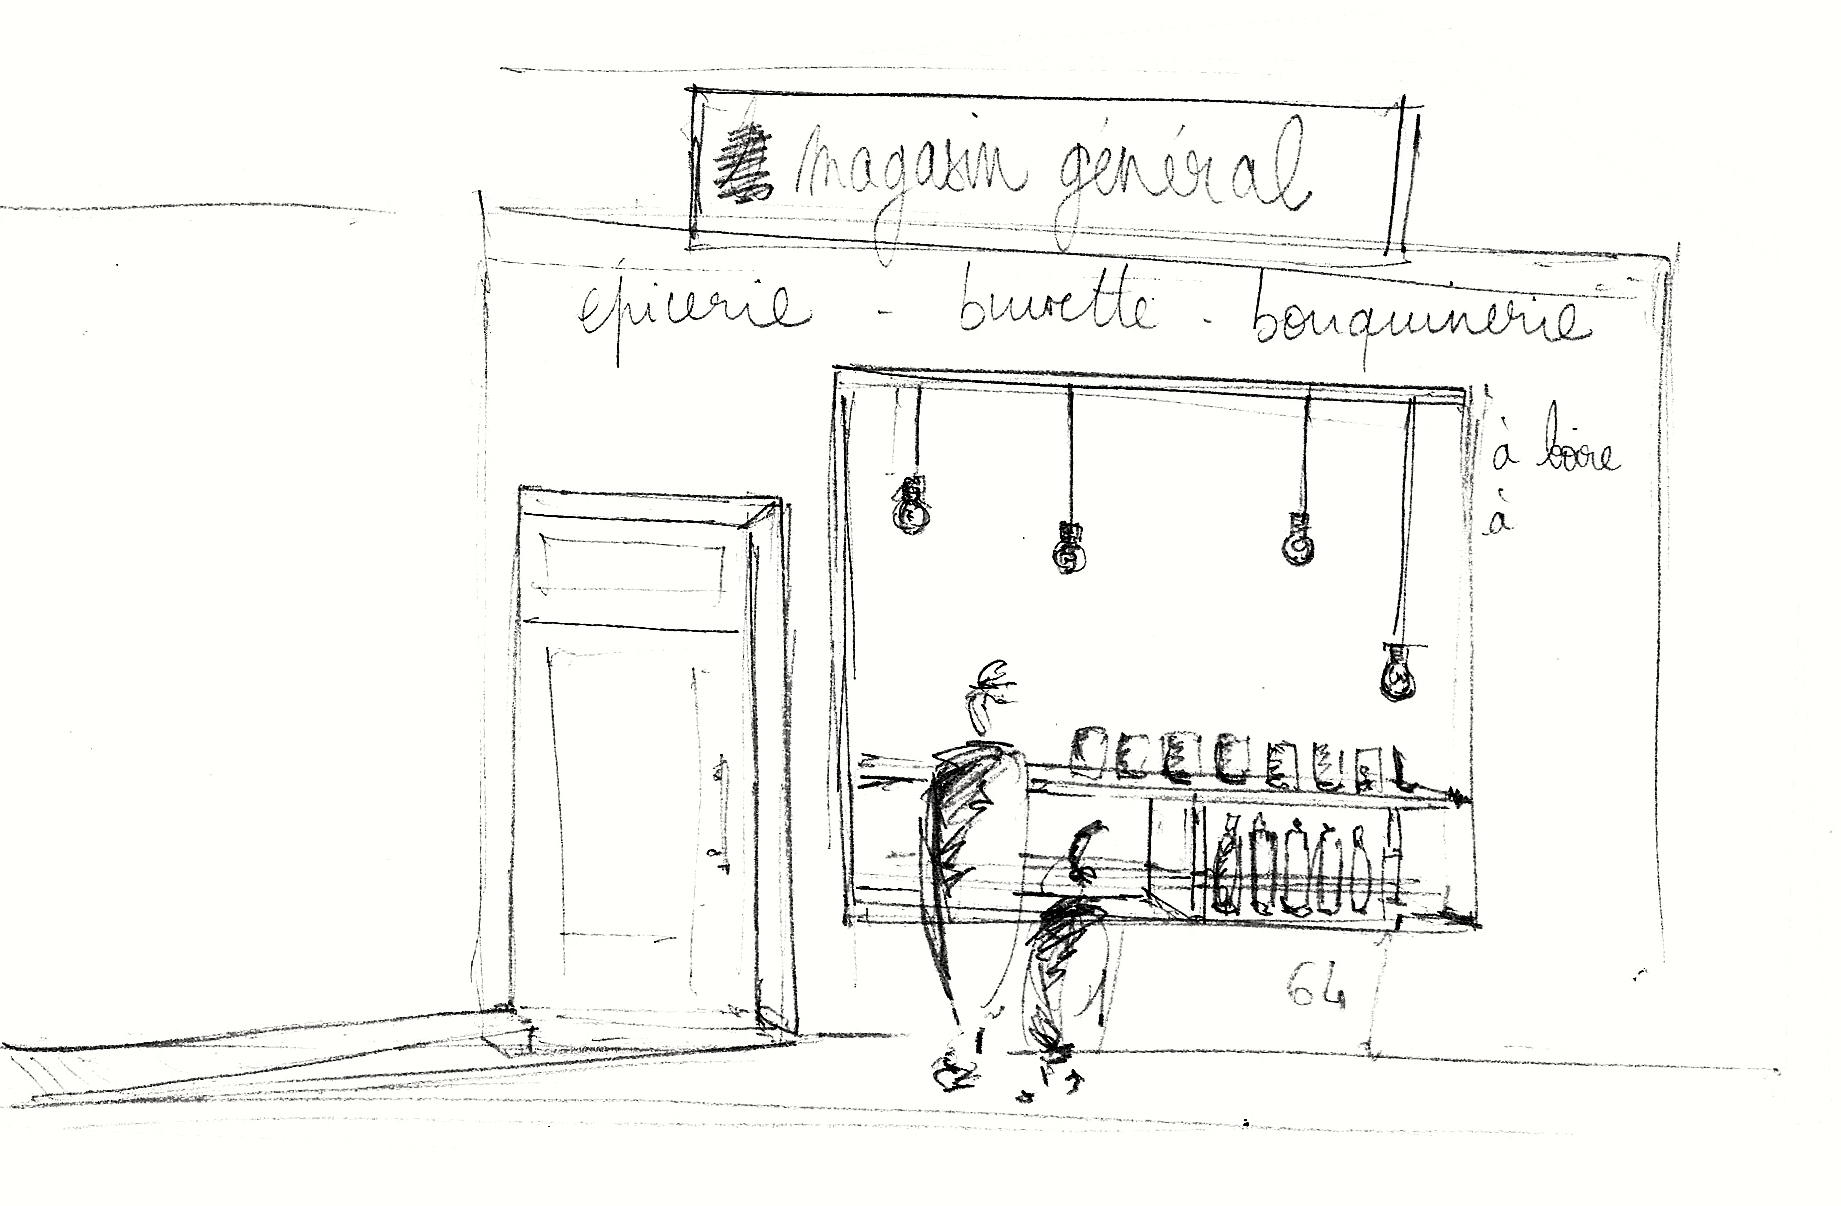 magasin général
épicerie - buvette - bouquinerie
à boire
à
64